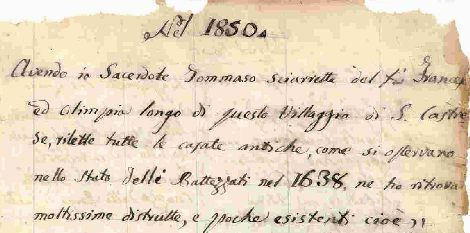 Nel 1850.
Avendo io Sacerdote Tommaso Sciarretta del fu Franco
ed Olimpia Longo di questo Villaggio di S. Castre
se, rilette tutte le casate antiche, come si osservano
nello Stato delli Battezzati nel 1638, ne ho ritrova
moltissime distrutte, e poche esistenti cioè